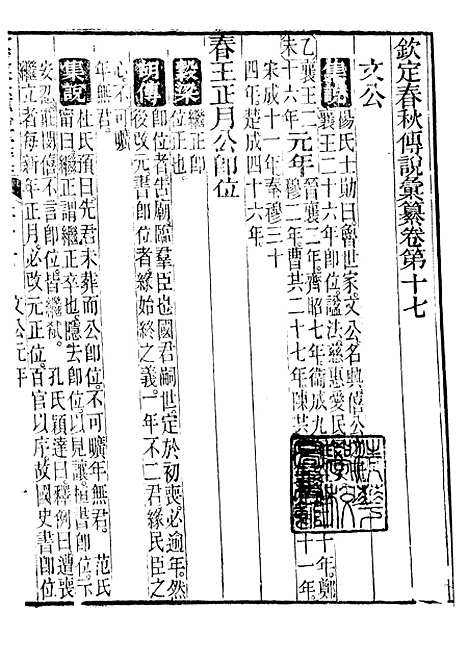 欽定春秋傳說彙纂卷第十七
文公
集說 楊氏士勛曰魯世家文公名興僖公
襄王二十六年即位諡法慈惠愛民
乙未 襄王二十六年 元年 晉襄二年齊昭七年衛成九 十年鄭
穆二年曹共二十七年陳共 十一年
宋成十一年秦穆三十
四年楚成四十六年
春王正月公卽位
穀梁 繼正卽
位正也
胡傳 卽位者告廟臨羣臣也國君嗣世定於初喪必逾年然
後改元書卽位者緣始終之義一年不二君緣民臣之
心不可曠
年無君
集說 杜氏預曰先君未葬而公卽位不可曠年無君 范氏
甯曰繼正謂繼正卒也隱去卽位以見讓桓書卽位示
安忍莊閔僖不言卽位皆繼弒 孔氏穎達曰釋例曰遭喪
繼立者每新年正月必改元正位百官以序故國史書卽位
文公元年